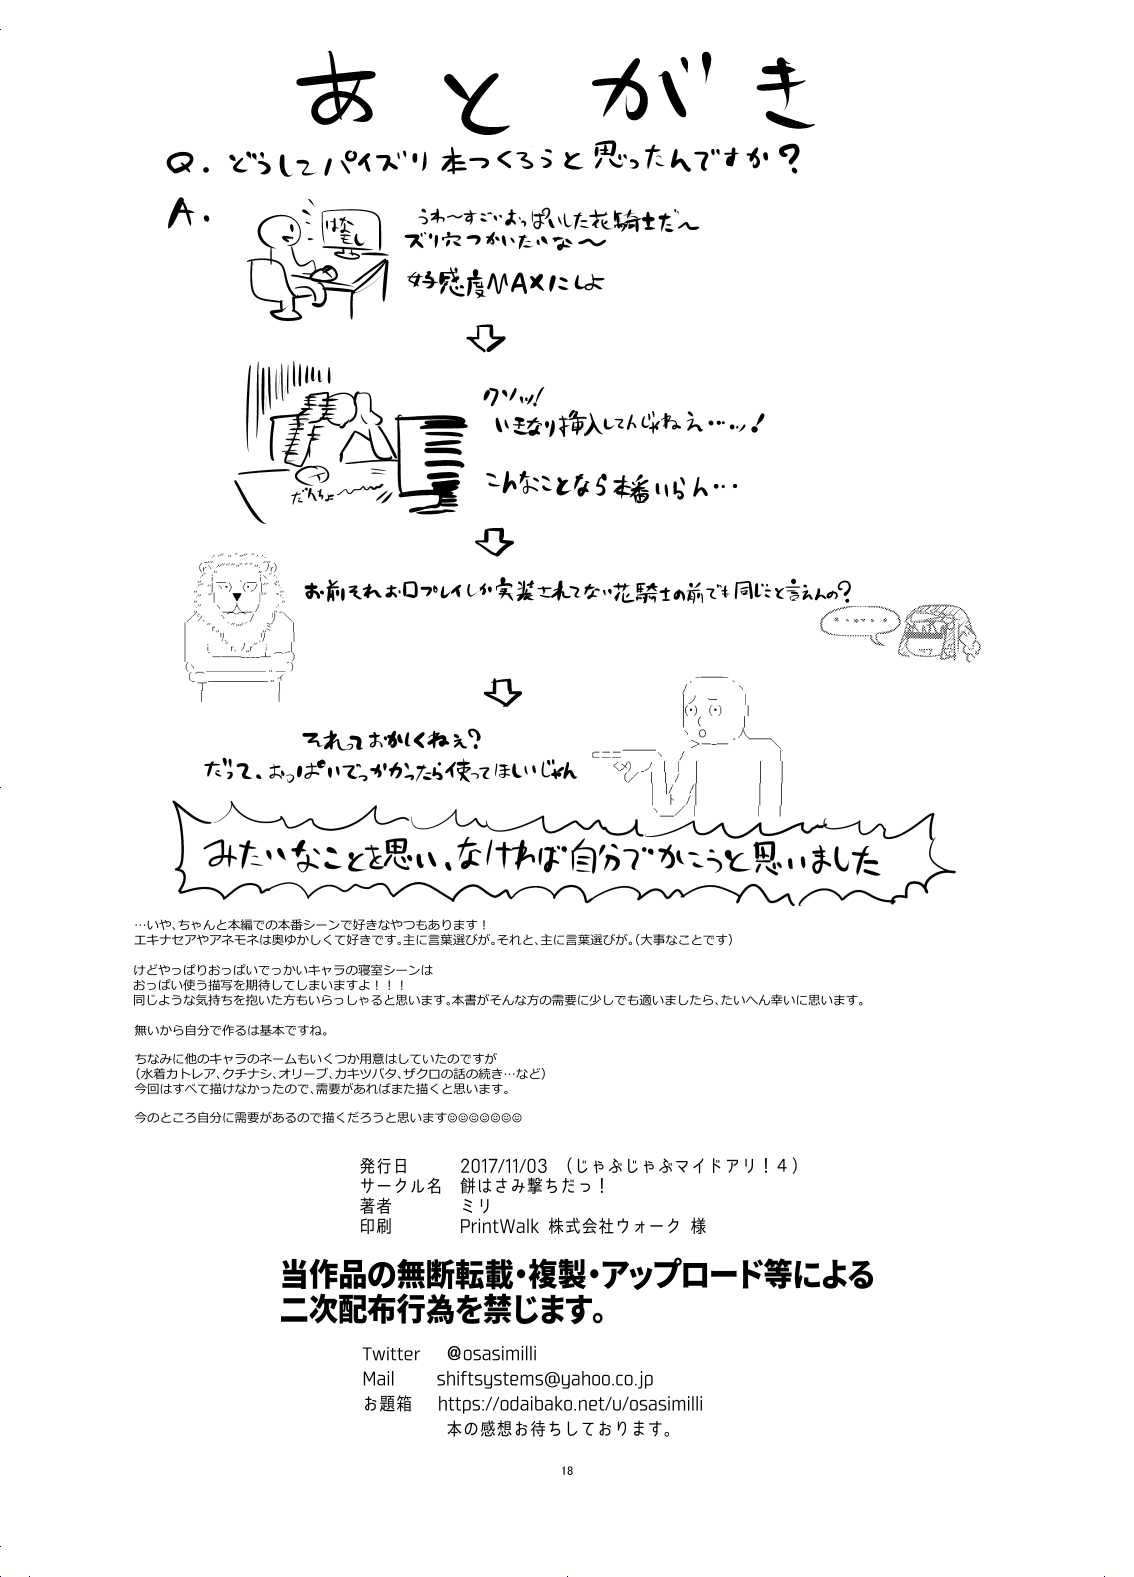 あとがき
Q. どうしてパイズリ本つくろうと思ったんですか？
A.
はな
もし
うわ〜すごいおっぱいした花騎士だ〜
ズリ穴つかいたいな〜
好感度MAXにしよ
クソッ!
いきなり挿入してんじゃねえ…ッ!
だんちょ〜〜
こんなことなら本番いらん…
お前それお口プレイしか実装されてない花騎士の前でも同じこと言えんの？
それっておかしくねぇ？
だって、おっぱいでっかかったら使ってほしいじゃん
みたいなことを思い、なければ自分でかこうと思いました
…いや、ちゃんと本編での本番シーンで好きなやつもあります！
エキナセアやアネモネは奥ゆかしくて好きです。主に言葉選びが。それと、主に言葉選びが。（大事なことです）
けどやっぱりおっぱいでっかいキャラの寝室シーンは
おっぱい使う描写を期待してしまいますよ！！！
同じような気持ちを抱いた方もいらっしゃると思います。本書がそんな方の需要に少しでも適いましたら、たいへん幸いに思います。
無いから自分で作るは基本ですね。
ちなみに他のキャラのネームもいくつか用意はしていたのですが
（水着カトレア、クチナシ、オリーブ、カキツバタ、ザクロの話の続き…など）
今回はすべて描けなかったので、需要があればまた描くと思います。
今のところ自分に需要があるので描くだろうと思います☺☺☺☺☺☺☺
発行日 2017/11/03 （じゃぶじゃぶマイドアリ！４）
サークル名 餅はさみ撃ちだっ！
著者 ミリ
印刷 PrintWalk 株式会社ウォーク 様
当作品の無断転載・複製・アップロード等による
二次配布行為を禁じます。
Twitter @osasimilli
Mail shiftsystems@yahoo.co.jp
お題箱 https://odaibako.net/u/osasimilli
本の感想お待ちしております。
18